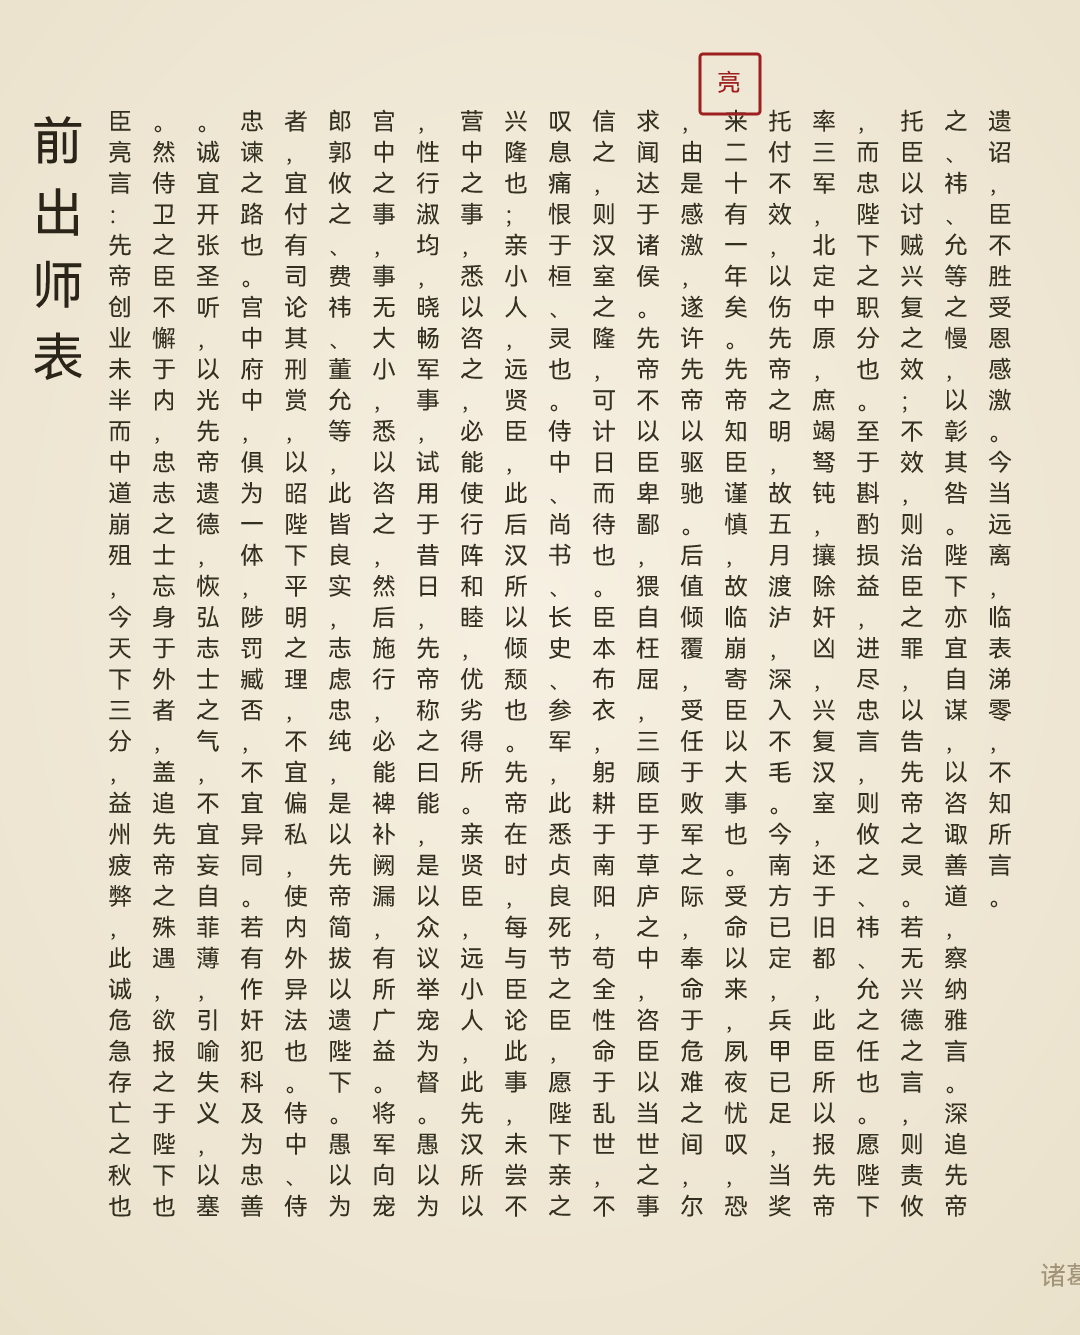 前出师表
臣亮言：先帝创业未半而中道崩殂，今天下三分，益州疲弊，此诚危急存亡之秋也
。然侍卫之臣不懈于内，忠志之士忘身于外者，盖追先帝之殊遇，欲报之于陛下也
。诚宜开张圣听，以光先帝遗德，恢弘志士之气，不宜妄自菲薄，引喻失义，以塞
忠谏之路也。宫中府中，俱为一体，陟罚臧否，不宜异同。若有作奸犯科及为忠善
者，宜付有司论其刑赏，以昭陛下平明之理，不宜偏私，使内外异法也。侍中、侍
郎郭攸之、费祎、董允等，此皆良实，志虑忠纯，是以先帝简拔以遗陛下。愚以为
宫中之事，事无大小，悉以咨之，然后施行，必能裨补阙漏，有所广益。将军向宠
，性行淑均，晓畅军事，试用于昔日，先帝称之曰能，是以众议举宠为督。愚以为
营中之事，悉以咨之，必能使行阵和睦，优劣得所。亲贤臣，远小人，此先汉所以
兴隆也；亲小人，远贤臣，此后汉所以倾颓也。先帝在时，每与臣论此事，未尝不
叹息痛恨于桓、灵也。侍中、尚书、长史、参军，此悉贞良死节之臣，愿陛下亲之
信之，则汉室之隆，可计日而待也。臣本布衣，躬耕于南阳，苟全性命于乱世，不
求闻达于诸侯。先帝不以臣卑鄙，猥自枉屈，三顾臣于草庐之中，咨臣以当世之事
，由是感激，遂许先帝以驱驰。后值倾覆，受任于败军之际，奉命于危难之间，尔
来二十有一年矣。先帝知臣谨慎，故临崩寄臣以大事也。受命以来，夙夜忧叹，恐
托付不效，以伤先帝之明，故五月渡泸，深入不毛。今南方已定，兵甲已足，当奖
率三军，北定中原，庶竭驽钝，攘除奸凶，兴复汉室，还于旧都，此臣所以报先帝
，而忠陛下之职分也。至于斟酌损益，进尽忠言，则攸之、祎、允之任也。愿陛下
托臣以讨贼兴复之效；不效，则治臣之罪，以告先帝之灵。若无兴德之言，则责攸
之、祎、允等之慢，以彰其咎。陛下亦宜自谋，以咨诹善道，察纳雅言。深追先帝
遗诏，臣不胜受恩感激。今当远离，临表涕零，不知所言。
亮
诸葛